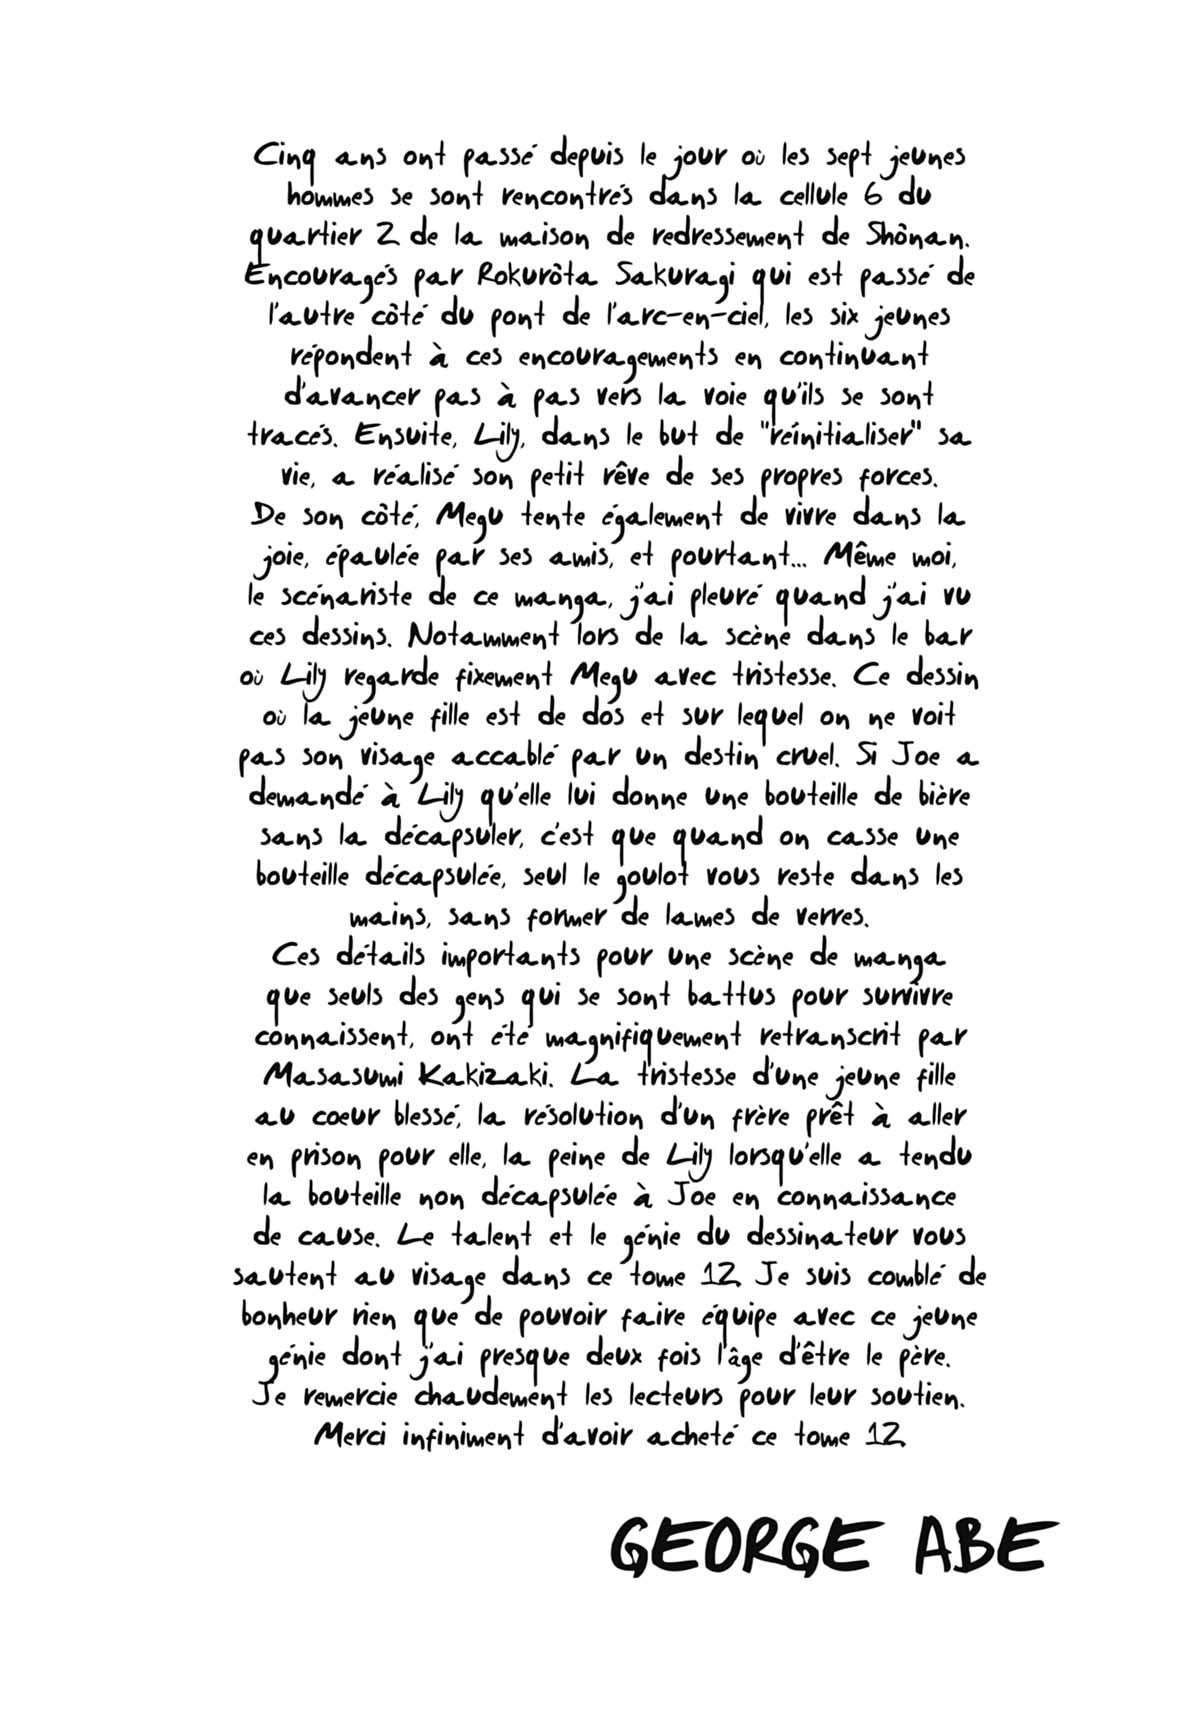 Cinq ans ont passé depuis le jour où les sept jeunes
hommes se sont rencontrés dans la cellule 6 du
quartier 2 de la maison de redressement de Shônan.
Encouragés par Rokurôta Sakuragi qui est passé de
l'autre côté du pont de l'arc-en-ciel, les six jeunes
répondent à ces encouragements en continuant
d'avancer pas à pas vers la voie qu'ils se sont
tracés. Ensuite, Lily, dans le but de "réinitialiser" sa
vie, a réalisé son petit rêve de ses propres forces.
De son côté, Megu tente également de vivre dans la
joie, épaulée par ses amis, et pourtant... Même moi,
le scénariste de ce manga, j'ai pleuré quand j'ai vu
ces dessins. Notamment lors de la scène dans le bar
où Lily regarde fixement Megu avec tristesse. Ce dessin
où la jeune fille est de dos et sur lequel on ne voit
pas son visage accablé par un destin cruel. Si Joe a
demandé à Lily qu'elle lui donne une bouteille de bière
sans la décapsuler, c'est que quand on casse une
bouteille décapsulée, seul le goulot vous reste dans les
mains, sans former de lames de verres.
Ces détails importants pour une scène de manga
que seuls des gens qui se sont battus pour survivre
connaissent, ont été magnifiquement retranscrit par
Masasumi Kakizaki. La tristesse d'une jeune fille
au coeur blessé, la résolution d'un frère prêt à aller
en prison pour elle, la peine de Lily lorsqu'elle a tendu
la bouteille non décapsulée à Joe en connaissance
de cause. Le talent et le génie du dessinateur vous
sautent au visage dans ce tome 12. Je suis comblé de
bonheur rien que de pouvoir faire équipe avec ce jeune
génie dont j'ai presque deux fois l'âge d'être le père.
Je remercie chaudement les lecteurs pour leur soutien.
Merci infiniment d'avoir acheté ce tome 12.
GEORGE ABE